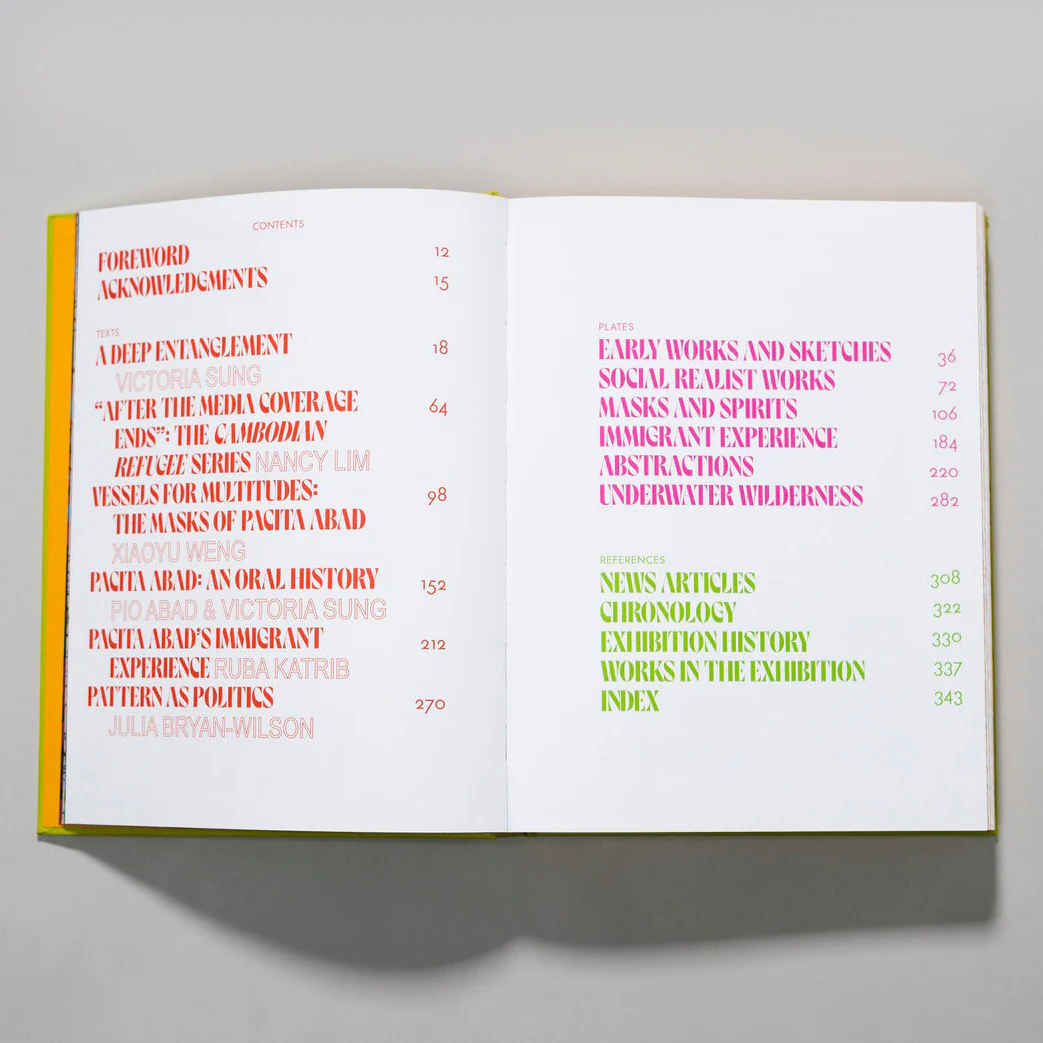 CONTENTS
FOREWORD 12
ACKNOWLEDGMENTS 15
TEXTS
A DEEP ENTANGLEMENT 18
VICTORIA SUNG
“AFTER THE MEDIA COVERAGE 64
ENDS”: THE CAMBODIAN
REFUGEE SERIES NANCY LIM
VESSELS FOR MULTITUDES: 98
THE MASKS OF PACITA ABAD
XIAOYU WENG
PACITA ABAD: AN ORAL HISTORY 152
PIO ABAD & VICTORIA SUNG
PACITA ABAD’S IMMIGRANT 212
EXPERIENCE RUBA KATRIB
PATTERN AS POLITICS 270
JULIA BRYAN-WILSON
PLATES
EARLY WORKS AND SKETCHES 36
SOCIAL REALIST WORKS 72
MASKS AND SPIRITS 106
IMMIGRANT EXPERIENCE 184
ABSTRACTIONS 220
UNDERWATER WILDERNESS 282
REFERENCES
NEWS ARTICLES 308
CHRONOLOGY 322
EXHIBITION HISTORY 330
WORKS IN THE EXHIBITION 337
INDEX 343